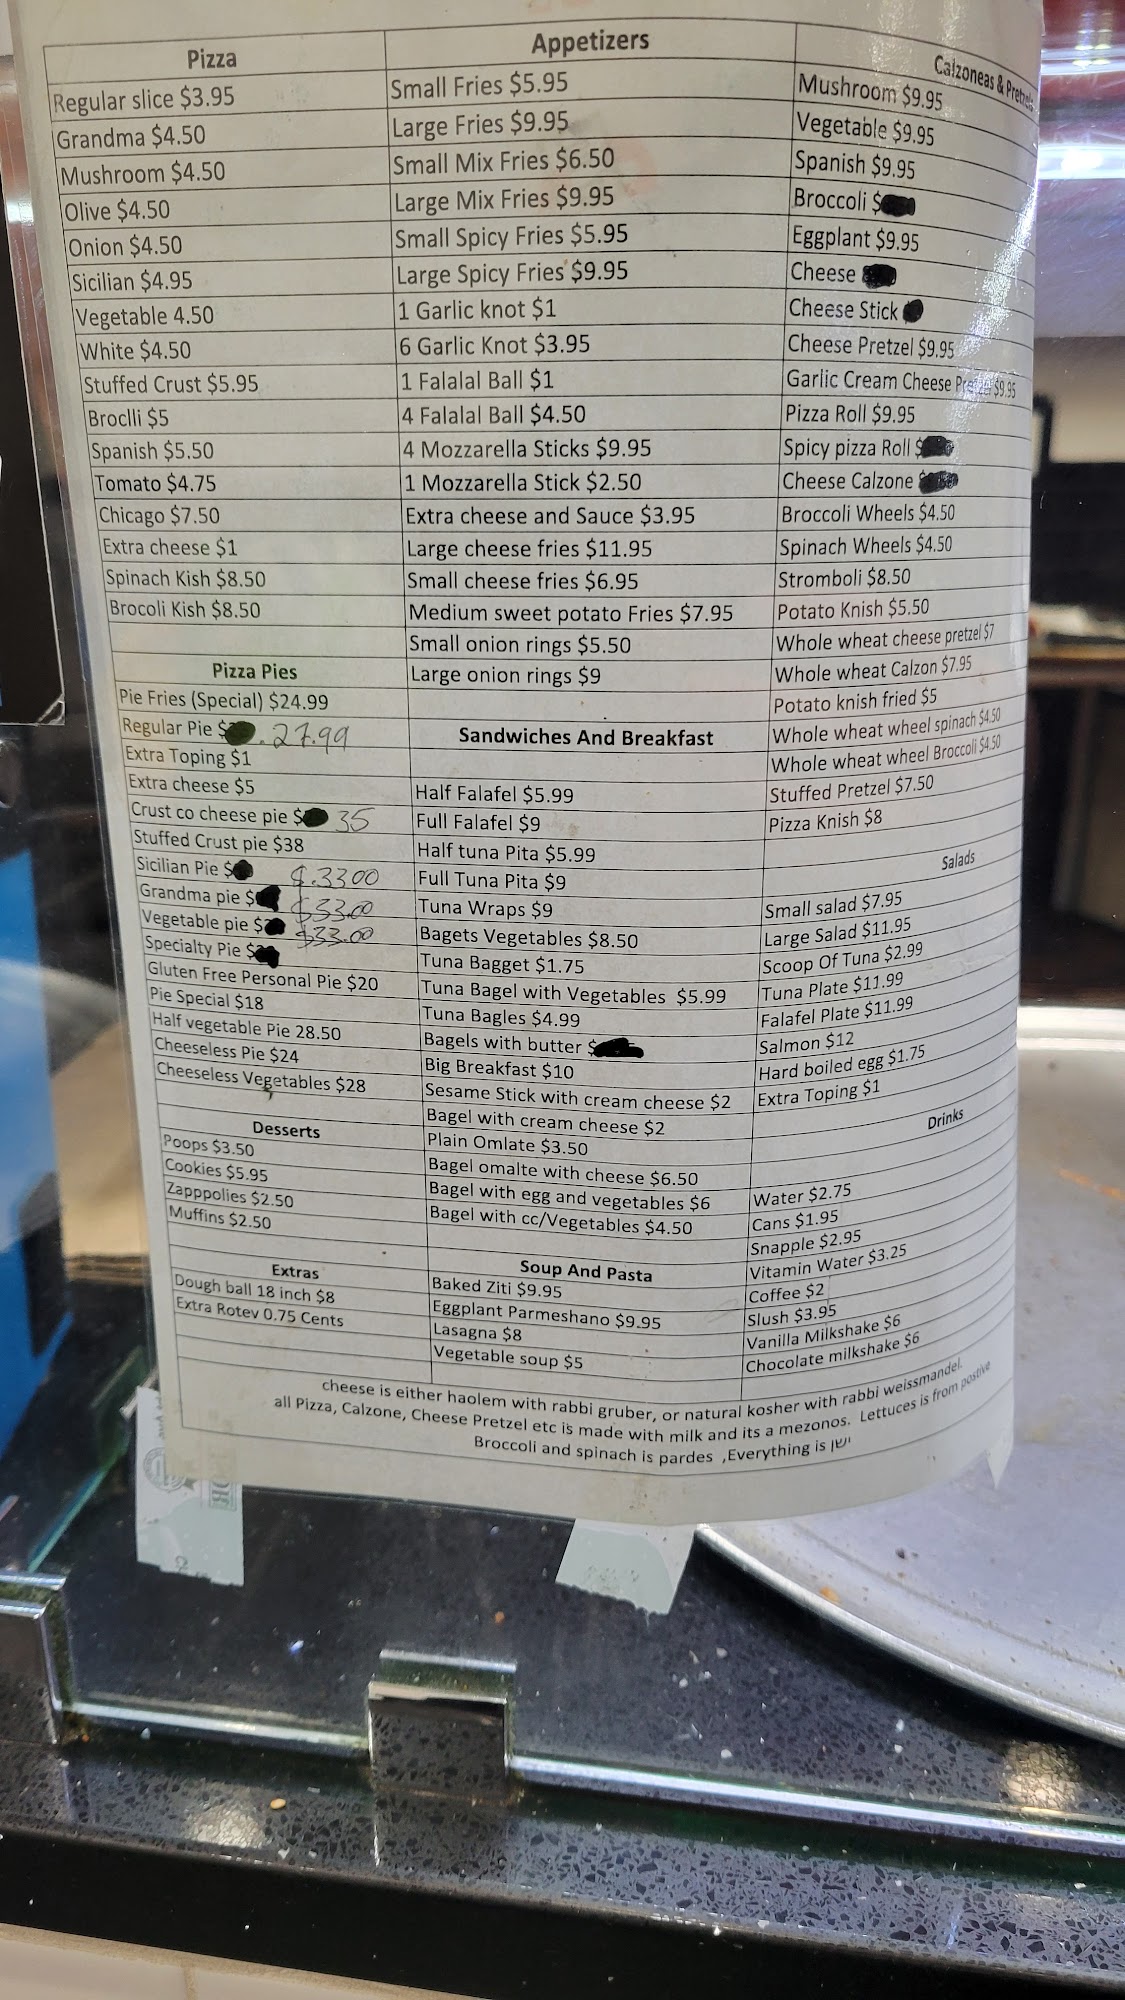 Pizza
Regular slice $3.95
Grandma $4.50
Mushroom $4.50
Olive $4.50
Onion $4.50
Sicilian $4.95
Vegetable 4.50
White $4.50
Stuffed Crust $5.95
Broclli $5
Spanish $5.50
Tomato $4.75
Chicago $7.50
Extra cheese $1
Spinach Kish $8.50
Brocoli Kish $8.50
Pizza Pies
Pie Fries (Special) $24.99
Regular Pie $ .27.99
Extra Toping $1
Extra cheese $5
Crust co cheese pie $ 35
Stuffed Crust pie $38
Sicilian Pie $ $.33.00
Grandma pie $ $33.00
Vegetable pie $ $33.00
Specialty Pie $
Gluten Free Personal Pie $20
Pie Special $18
Half vegetable Pie 28.50
Cheeseless Pie $24
Cheeseless Vegetables $28
Desserts
Poops $3.50
Cookies $5.95
Zapppolies $2.50
Muffins $2.50
Extras
Dough ball 18 inch $8
Extra Rotev 0.75 Cents
Appetizers
Small Fries $5.95
Large Fries $9.95
Small Mix Fries $6.50
Large Mix Fries $9.95
Small Spicy Fries $5.95
Large Spicy Fries $9.95
1 Garlic knot $1
6 Garlic Knot $3.95
1 Falalal Ball $1
4 Falalal Ball $4.50
4 Mozzarella Sticks $9.95
1 Mozzarella Stick $2.50
Extra cheese and Sauce $3.95
Large cheese fries $11.95
Small cheese fries $6.95
Medium sweet potato Fries $7.95
Small onion rings $5.50
Large onion rings $9
Sandwiches And Breakfast
Half Falafel $5.99
Full Falafel $9
Half tuna Pita $5.99
Full Tuna Pita $9
Tuna Wraps $9
Bagets Vegetables $8.50
Tuna Bagget $1.75
Tuna Bagel with Vegetables $5.99
Tuna Bagles $4.99
Bagels with butter $
Big Breakfast $10
Sesame Stick with cream cheese $2
Bagel with cream cheese $2
Plain Omlate $3.50
Bagel omalte with cheese $6.50
Bagel with egg and vegetables $6
Bagel with cc/Vegetables $4.50
Soup And Pasta
Baked Ziti $9.95
Eggplant Parmeshano $9.95
Lasagna $8
Vegetable soup $5
Calzoneas & Pretzels
Mushroom $9.95
Vegetable $9.95
Spanish $9.95
Broccoli $
Eggplant $9.95
Cheese
Cheese Stick
Cheese Pretzel $9.95
Garlic Cream Cheese Pretzel $9.95
Pizza Roll $9.95
Spicy pizza Roll $
Cheese Calzone $
Broccoli Wheels $4.50
Spinach Wheels $4.50
Stromboli $8.50
Potato Knish $5.50
Whole wheat cheese pretzel $7
Whole wheat Calzon $7.95
Potato knish fried $5
Whole wheat wheel spinach $4.50
Whole wheat wheel Broccoli $4.50
Stuffed Pretzel $7.50
Pizza Knish $8
Salads
Small salad $7.95
Large Salad $11.95
Scoop Of Tuna $2.99
Tuna Plate $11.99
Falafel Plate $11.99
Salmon $12
Hard boiled egg $1.75
Extra Toping $1
Drinks
Water $2.75
Cans $1.95
Snapple $2.95
Vitamin Water $3.25
Coffee $2
Slush $3.95
Vanilla Milkshake $6
Chocolate milkshake $6
cheese is either haolem with rabbi gruber, or natural kosher with rabbi weissmandel.
all Pizza, Calzone, Cheese Pretzel etc is made with milk and its a mezonos. Lettuces is from postive
Broccoli and spinach is pardes ,Everything is ישן